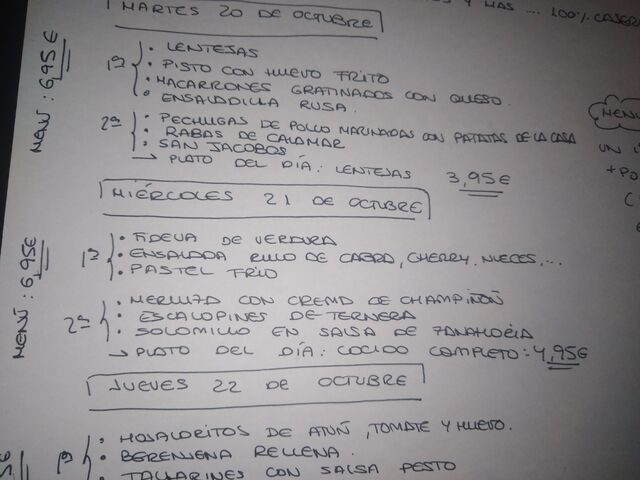 MARTES 20 DE OCTUBRE
Y MAS .... 100% CASER
MENÚ: 6,95€
1º
• LENTEJAS
• PISTO CON HUEVO FRITO
• MACARRONES GRATINADOS CON QUESO.
• ENSALADILLA RUSA.
2º
• PECHUGAS DE POLLO MARINADAS CON PATATAS DE LA CASA
• RABAS DE CALAMAR
• SAN JACOBOS
→ PLATO DEL DÍA: LENTEJAS 3,95€
MENU
UN
+ PO
(
MIÉRCOLES 21 DE OCTUBRE
MENÚ: 6,95€
1º
• FIDEUA DE VERDURA
• ENSALADA RULO DE CABRA, CHERRY, NUECES,...
• PASTEL FRIO
2º
• MERLUZA CON CREMA DE CHAMPIÑÓN
• ESCALOPINES DE TERNERA
• SOLOMILLO EN SALSA DE ZANAHORIA
→ PLATO DEL DÍA: COCIDO COMPLETO: 4,95€
JUEVES 22 DE OCTUBRE
5€
1º
• HOJALDRITOS DE ATÚN, TOMATE Y HUEVO.
• BERENJENA RELLENA.
• TALLARINES CON SALSA PESTO